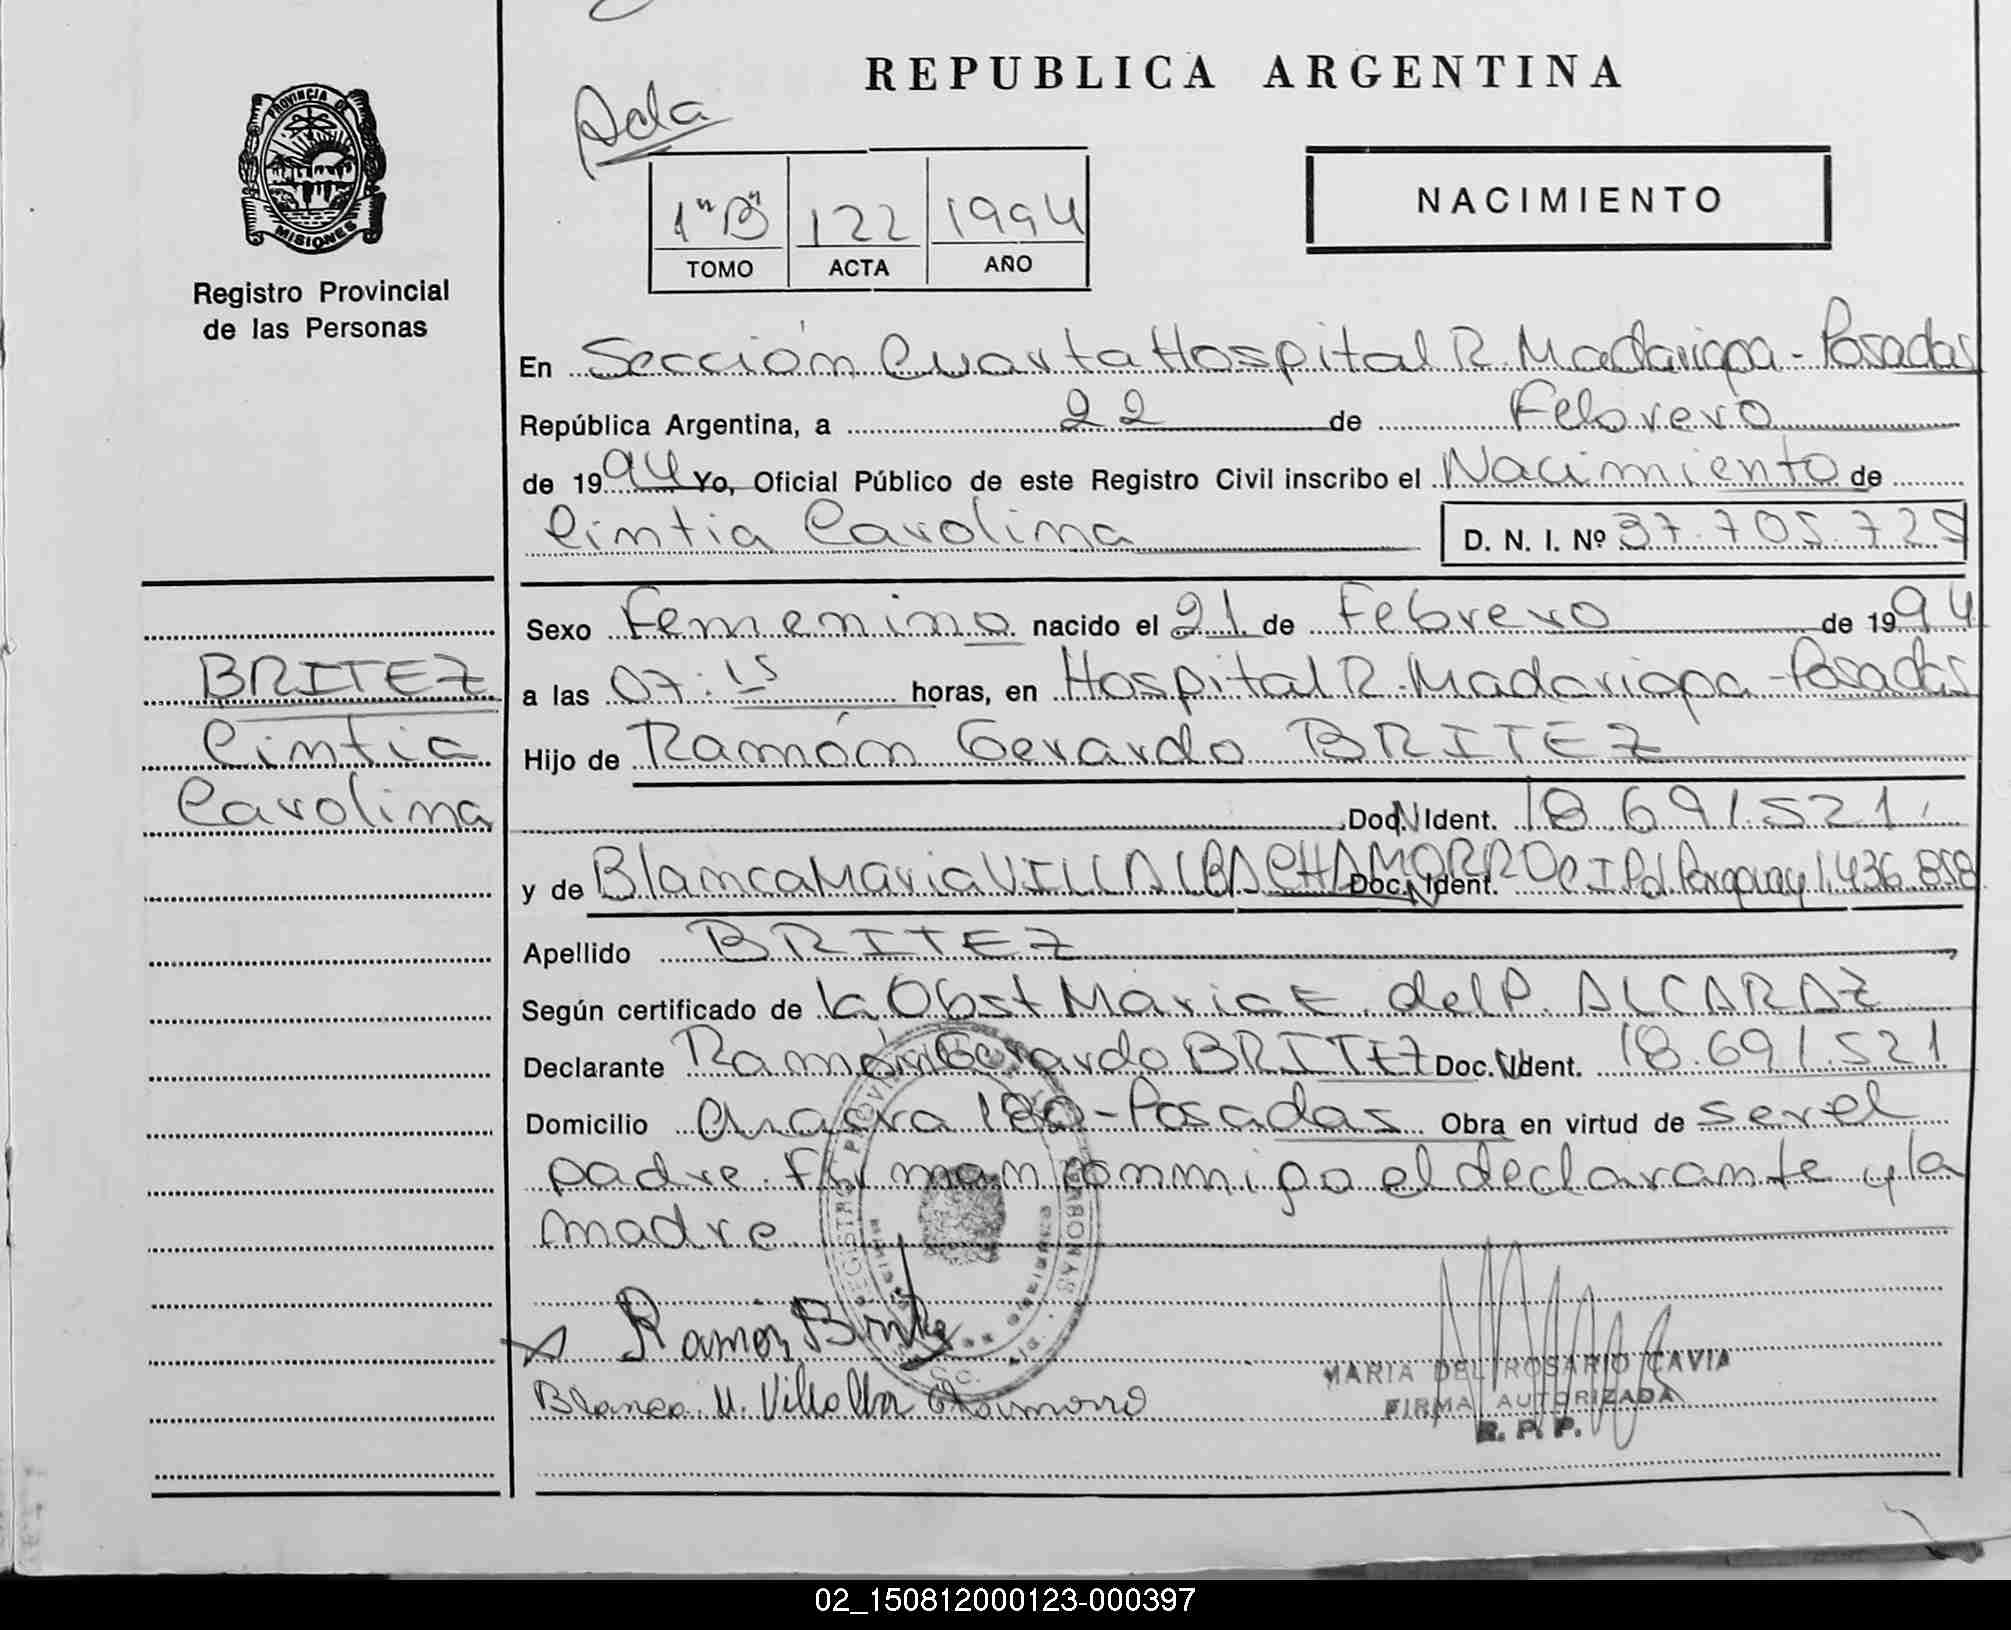 REPUBLICA ARGENTINA
Acta
PROVINCIA DE
MISIONES
Registro Provincial
de las Personas
1"B" 122 1994
TOMO ACTA AÑO
NACIMIENTO
En Sección Cuarta Hospital R. Madariaga - Posadas
República Argentina, a 22 de Febrero
de 1994 Yo, Oficial Público de este Registro Civil inscribo el Nacimiento de
Cintia Carolina D. N. I. Nº 37.705.725
Sexo Femenino nacido el 21 de Febrero de 1994
a las 07:15 horas, en Hospital R. Madariaga - Posadas
Hijo de Ramón Gerardo BRITEZ
Doc. N Ident. 18.691.521
y de Blanca Maria VILLALBA CHAMORRO Doc. N Ident. C I Pol Paraguay 1.436.858
Apellido BRITEZ
Según certificado de la Obst Maria E. del P. ALCARAZ
Declarante Ramón Gerardo BRITEZ Doc. N Ident. 18.691.521
Domicilio Chacra 180 - Posadas Obra en virtud de ser el
padre. Firman conmigo el declarante y la
madre
BRITEZ
Cintia
Carolina
Ramón Britez
Blanca M. Villalba Chamorro
MARIA DEL ROSARIO CAVIA
FIRMA AUTORIZADA
R. P. P.
02_150812000123-000397